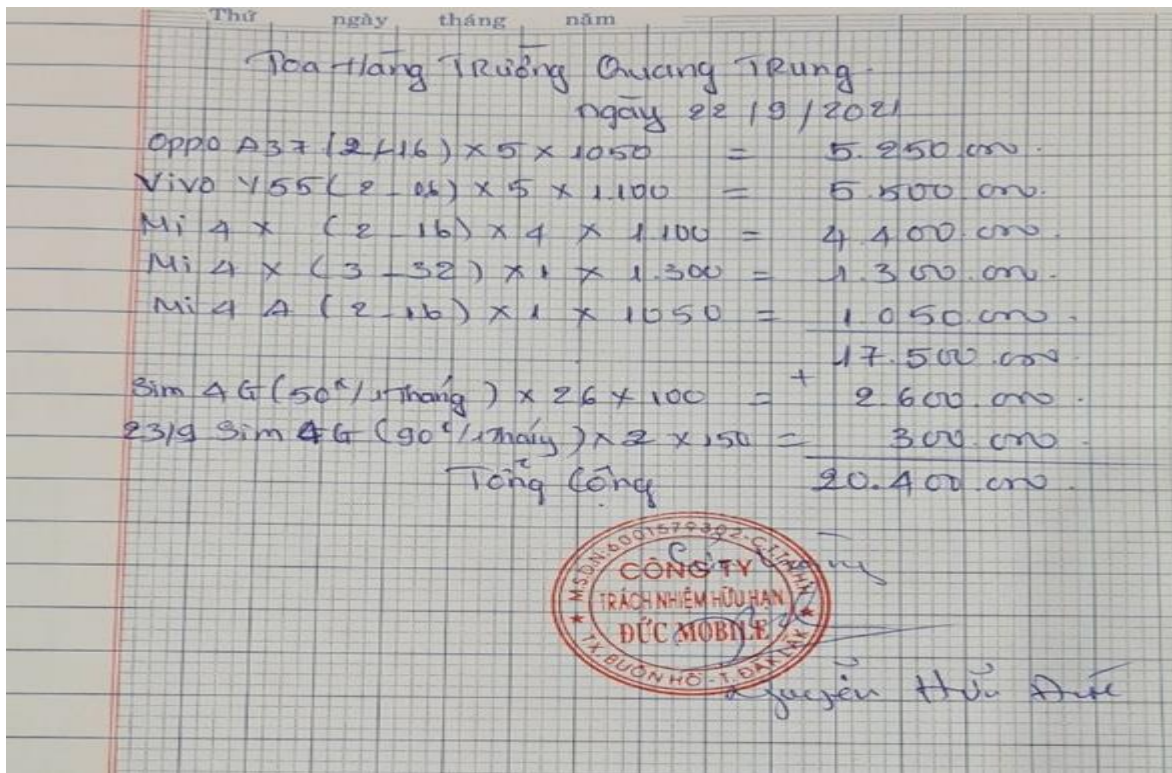 Thứ ngày tháng năm
Toa Hàng TRường Quang TRung.
ngày 22/9/2021
Oppo A37 (2-16) x 5 x 1050 = 5.250.000.
Vivo Y55 (2-16) x 5 x 1.100 = 5.500.000.
Mi 4 x (2-16) x 4 x 1.100 = 4.400.000.
Mi 4 x (3-32) x 1 x 1.300 = 1.300.000.
Mi 4 A (2-16) x 1 x 1050 = 1.050.000.
17.500.000
+
Sim 4G (50k/1 Tháng) x 26 x 100 = 2.600.000.
23/9 Sim 4G (90k/1 Tháng) x 2 x 150 = 300.000
Tổng Cộng 20.400.000.
M.S.D.N: 6001579392-C.T.TNHH
CÔNG TY
TRÁCH NHIỆM HỮU HẠN
ĐỨC MOBILE
TX. BUÔN HỒ - T. ĐẮK LẮK
Nguyễn Hữu Đức